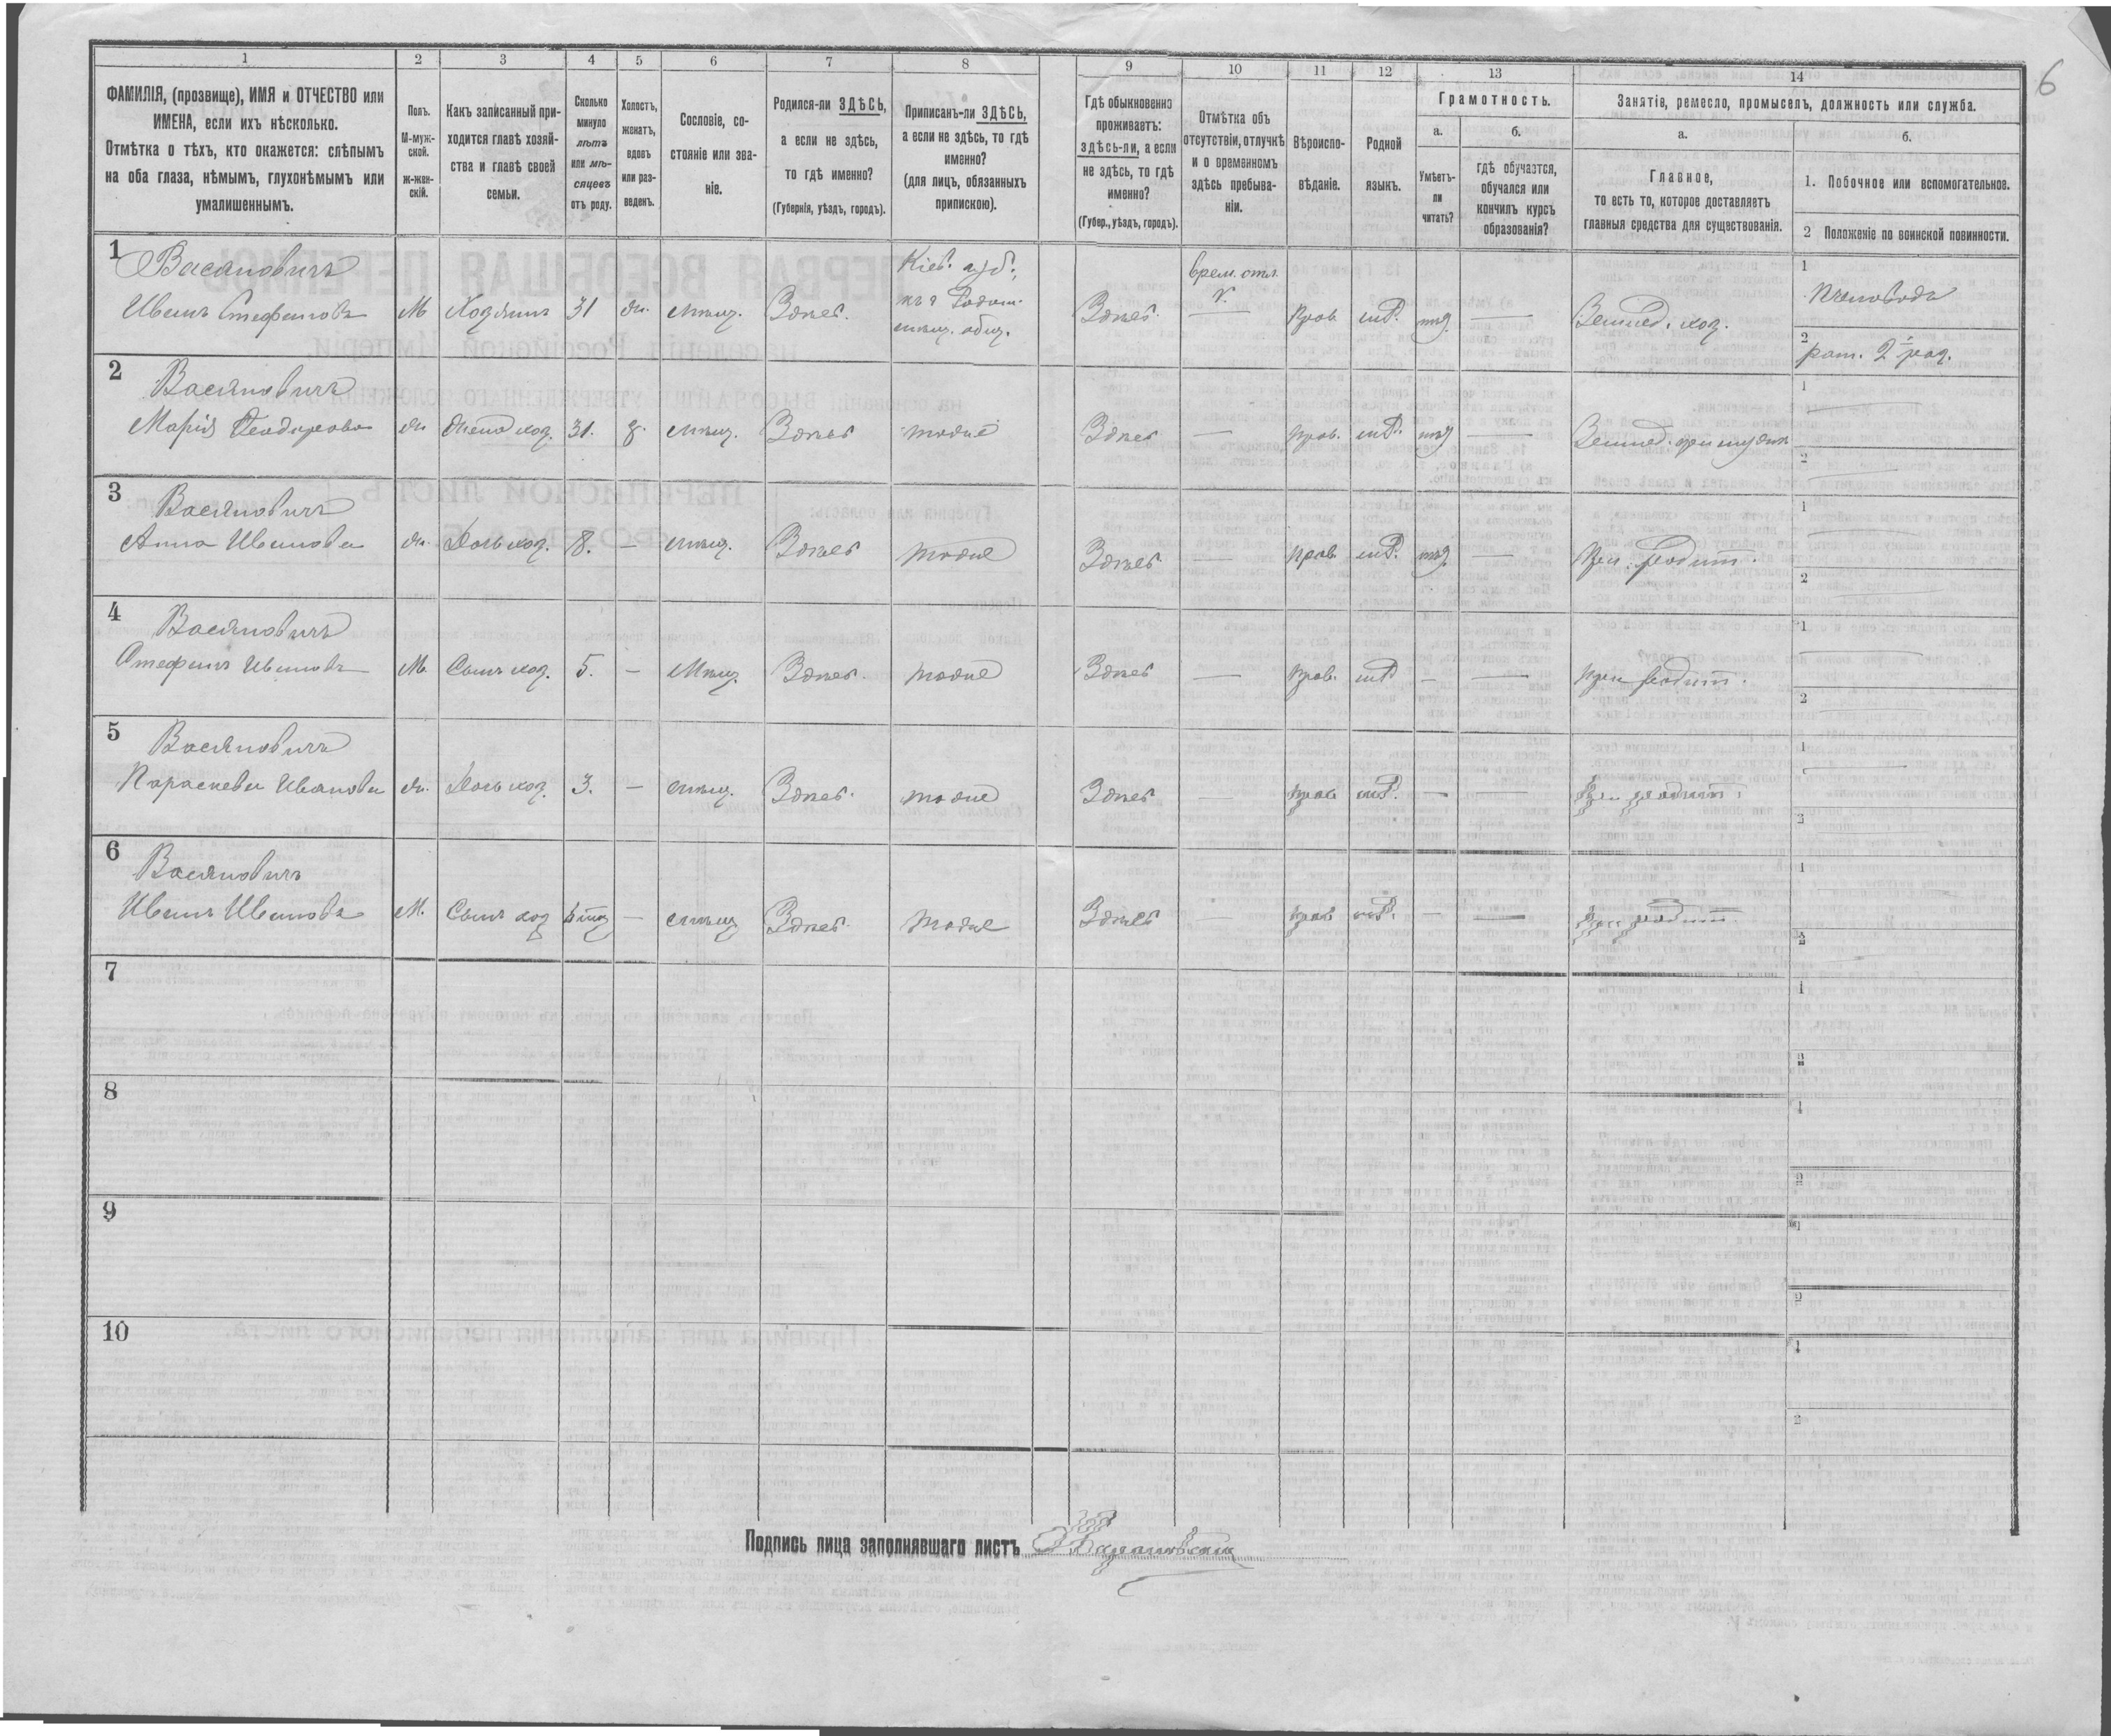 6
1 2 3 4 5 6 7 8 9 10 11 12 13 14
ФАМИЛІЯ, (прозвище), ИМЯ и ОТЧЕСТВО или
ИМЕНА, если ихъ нѣсколько.
Отмѣтка о тѣхъ, кто окажется: слѣпымъ
на оба глаза, нѣмымъ, глухонѣмымъ или
умалишеннымъ.
Полъ.
М-муж-
ской.
ж-жен-
скій.
Какъ записанный при-
ходится главѣ хозяй-
ства и главѣ своей
семьи.
Сколько
минуло
лѣтъ
или мѣ-
сяцевъ
отъ роду.
Холостъ,
женатъ,
вдовъ
или раз-
веденъ.
Сословіе, со-
стояніе или зва-
ніе.
Родился-ли ЗДѢСЬ,
а если не здѣсь,
то гдѣ именно?
(Губернія, уѣздъ, городъ).
Приписанъ-ли ЗДѢСЬ,
а если не здѣсь, то гдѣ
именно?
(для лицъ, обязанныхъ
припискою).
Гдѣ обыкновенно
проживаетъ:
здѣсь-ли, а если
не здѣсь, то гдѣ
именно?
(Губер., уѣздъ, городъ).
Отмѣтка объ
отсутствіи, отлучкѣ
и о временномъ
здѣсь пребыва-
ніи.
Вѣроиспо-
вѣданіе.
Родной
языкъ.
Грамотность.
а.
Умѣетъ-
ли
читать?
б.
гдѣ обучается,
обучался или
кончилъ курсъ
образованія?
Занятіе, ремесло, промыселъ, должность или служба.
а.
Главное,
то есть то, которое доставляетъ
главныя средства для существованія.
б.
1. Побочное или вспомогательное.
2 Положеніе по воинской повинности.
1 Васяновичъ Кіев. губ., врем. отл. 1 Пчеловодъ
Иванъ Стефановъ М Хозяинъ 31 ж. мѣщ. Здѣсь. мѣщ. общ. Здѣсь. — Прав. — Землед. хоз. 2 рат. 2 раз.
2 Васяновичъ 1
Марія Теодорова ж. Жена хоз. 31. з. мѣщ. Здѣсь тоже Здѣсь — Прав. — Землед. при мужѣ 2
3 Васяновичъ 1
Анна Иванова ж. Дочь хоз. 8. — мѣщ. Здѣсь тоже Здѣсь. — Прав. — При родит. 2
4 Васяновичъ 1
Стефанъ Ивановъ М Сынъ хоз. 5. — Мѣщ. Здѣсь. тоже Здѣсь — Прав. — — При родит. 2
5 Васяновичъ 1
Параскева Иванова ж. Дочь хоз. 3. — мѣщ. Здѣсь. тоже Здѣсь — Прав. — — При родит. 2
6 Васяновичъ 1
Иванъ Ивановъ М. Сынъ хоз — мѣщ Здѣсь. тоже Здѣсь — Прав. — — При родит. 2
7 1
2
8 1
2
9 1
2
10 1
2
Подпись лица заполнявшаго листъ